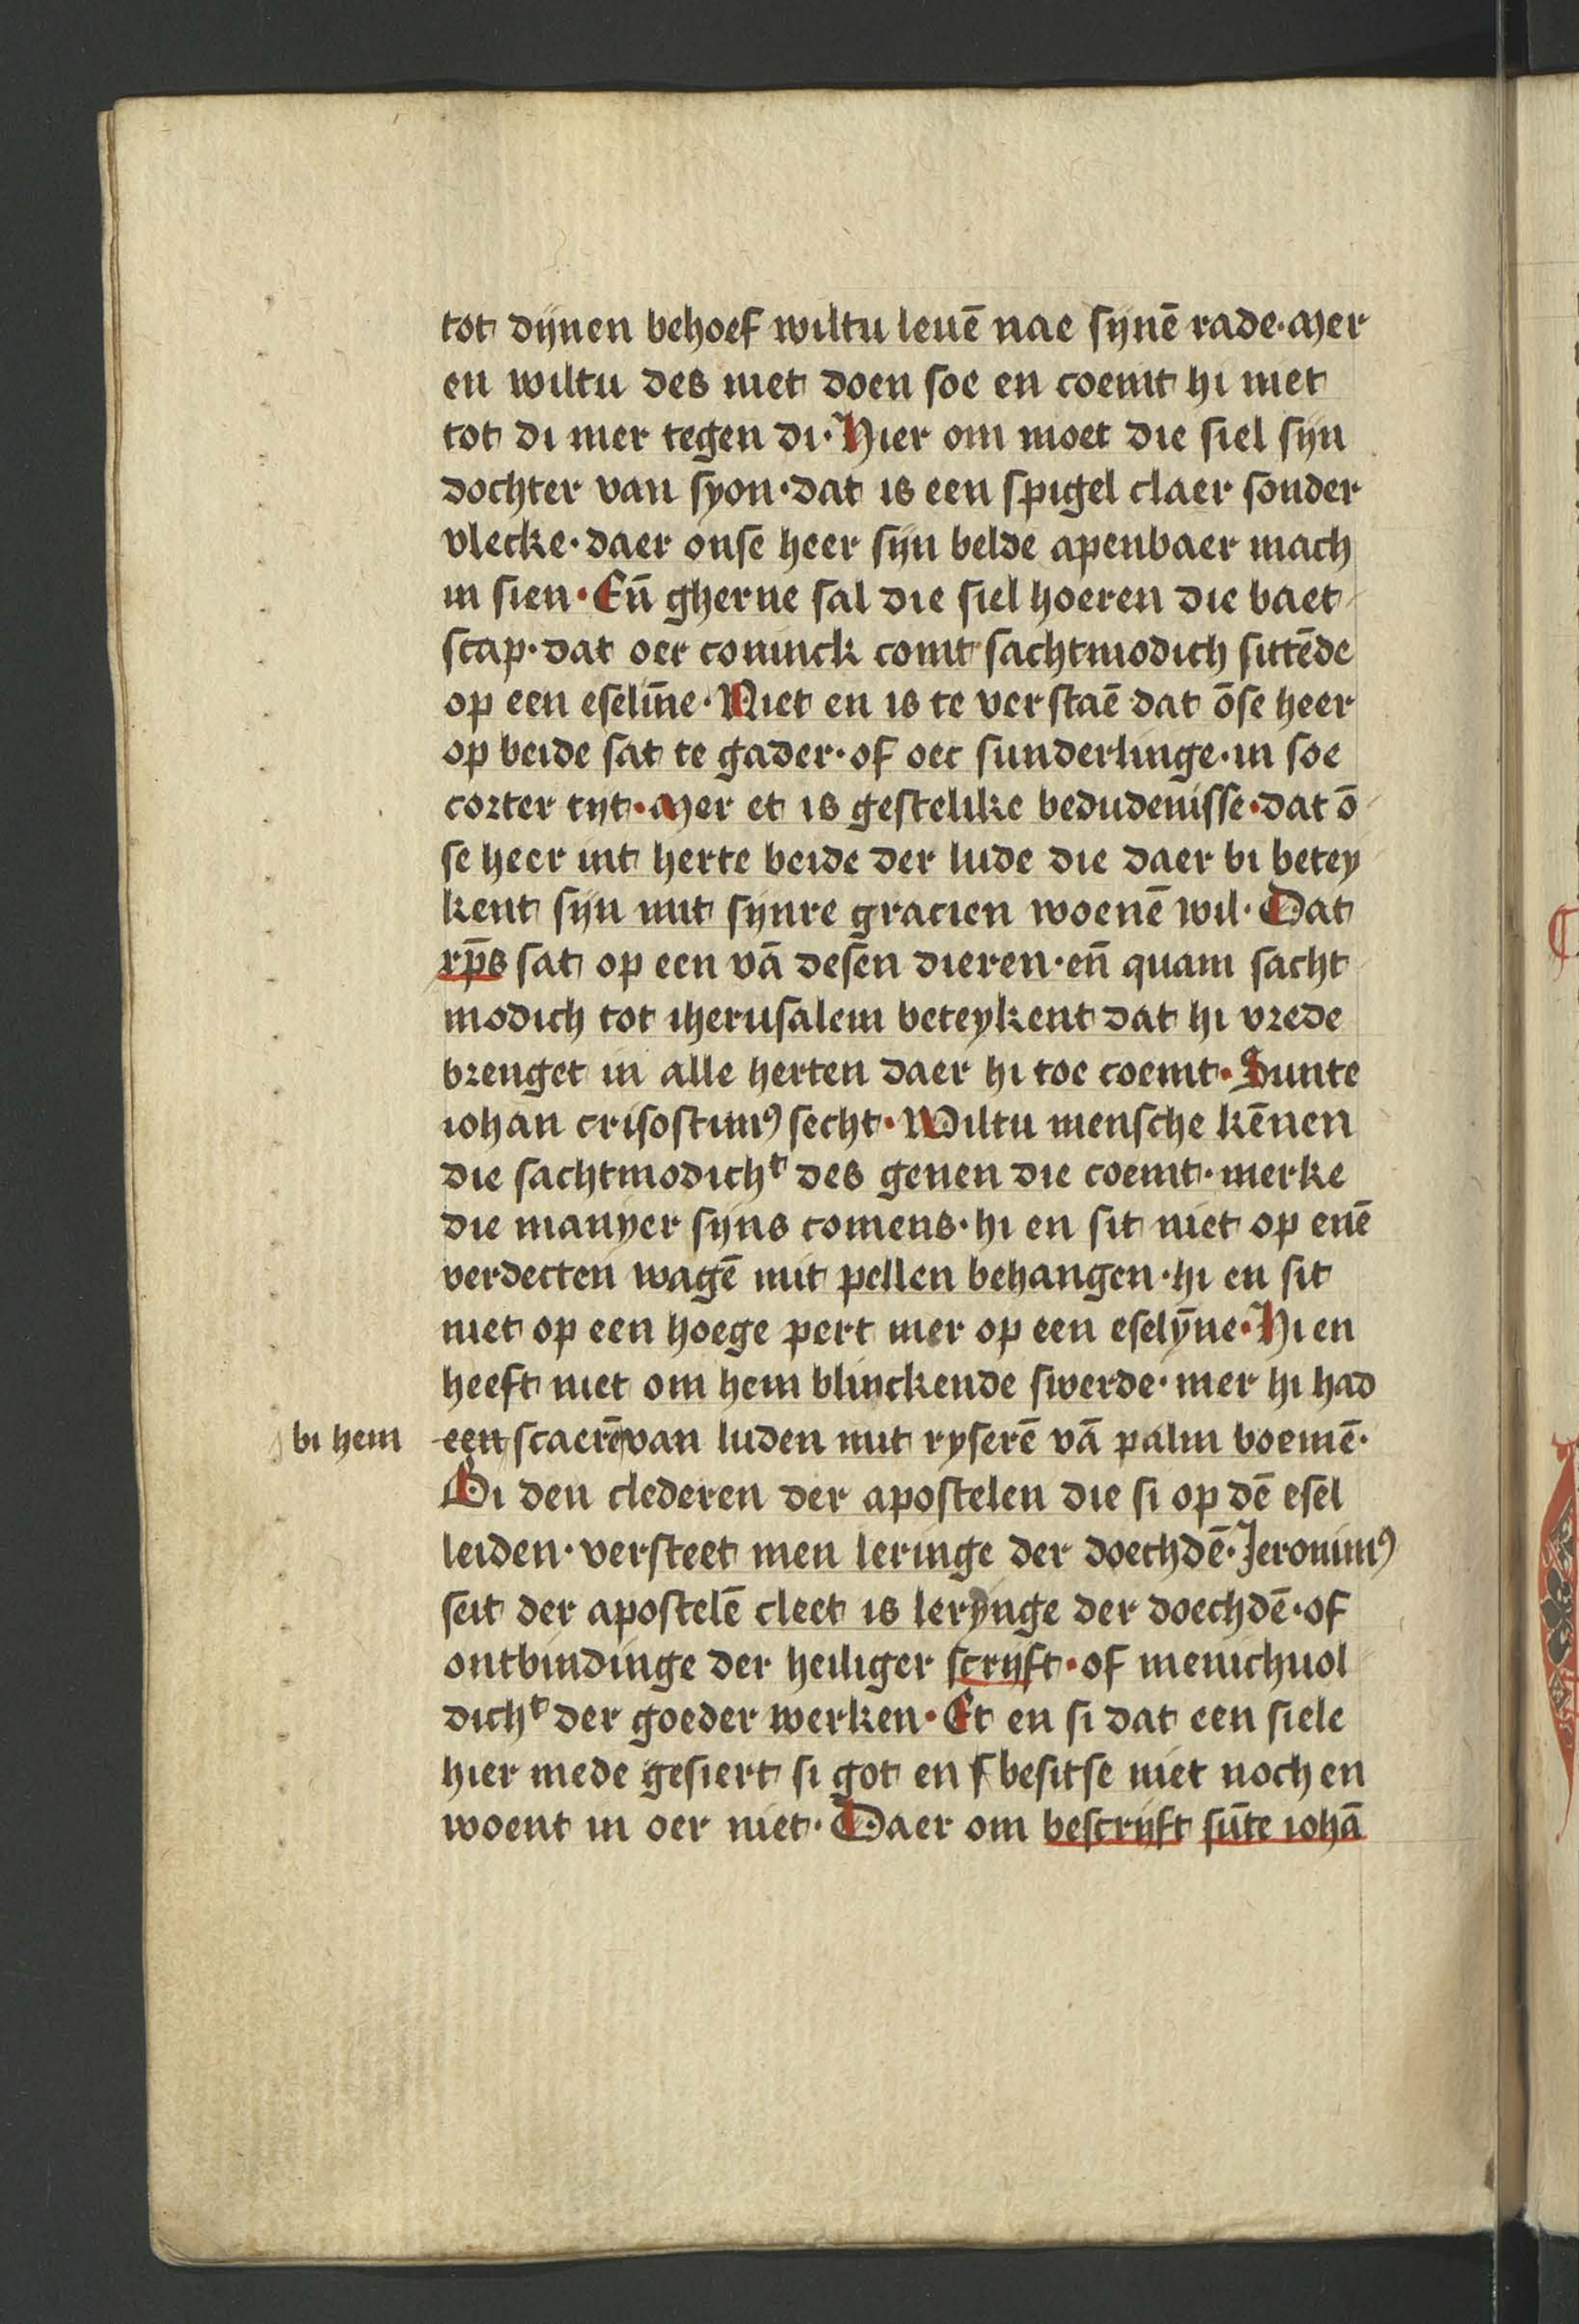 tot dijnen behoef wiltu leuē nae sijnē rade· Mer
en wiltu des niet doen soe en coemt hi niet
tot di mer tegen di· Hier om moet die siel sijn
dochter van syon· dat is een spigel claer sonder
vlecke· daer onse heer sijn belde apenbaer mach
in sien· Eñ gherne sal die siel hoeren die baet
scap· dat oer coninck comt sachtmodich sittēde
op een eselin̄e· Niet en is te verstaē dat ōse heer
op beide sat te gader· of oec sunderlinge· in soe
corter tijt· Mer et is gestelike bedudenisse· dat ō
se heer int herte beide der lude die daer bi betey
kent sijn mit sijnre gracien woenē wil· Dat
xp̄s sat op een vā desen dieren· eñ quam sacht
modich tot iherusalem beteykent dat hi vrede
brenget in alle herten daer hi toe coemt· Sunte
iohan crisostimꝰ secht· Wiltu mensche kēnen
die sachtmodichᵗ des genen die coemt· merke
die manyer sijns comens· hi en sit niet op enē
verdecten wagē mit pellen behangen· hi en sit
niet op een hoege pert mer op een eselȳne· Hi en
heeft niet om hem blinckende swerde· mer hi had
bi hem een scaerē van luden mit ryserē vā palm boemē·
Bi den clederen der apostelen die si op dē esel
leiden· versteet men leringe der doechdē· Jeronimꝰ
seit der apostelē cleet is lerynge der doechdē· of
ontbindinge der heiliger scrijft· of menichuol
dichᵗ der goeder werken· Et en si dat een siele
hier mede gesiert si got en besitse niet noch en
woent in oer niet· Daer om bescrijft sūte iohā